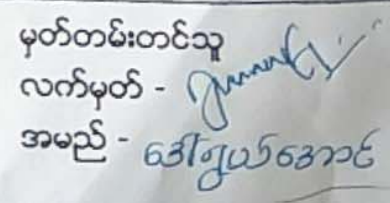 မှတ်တမ်းတင်သူ
လက်မှတ် -
အမည် - ဒေါ်ရွယ်အောင်